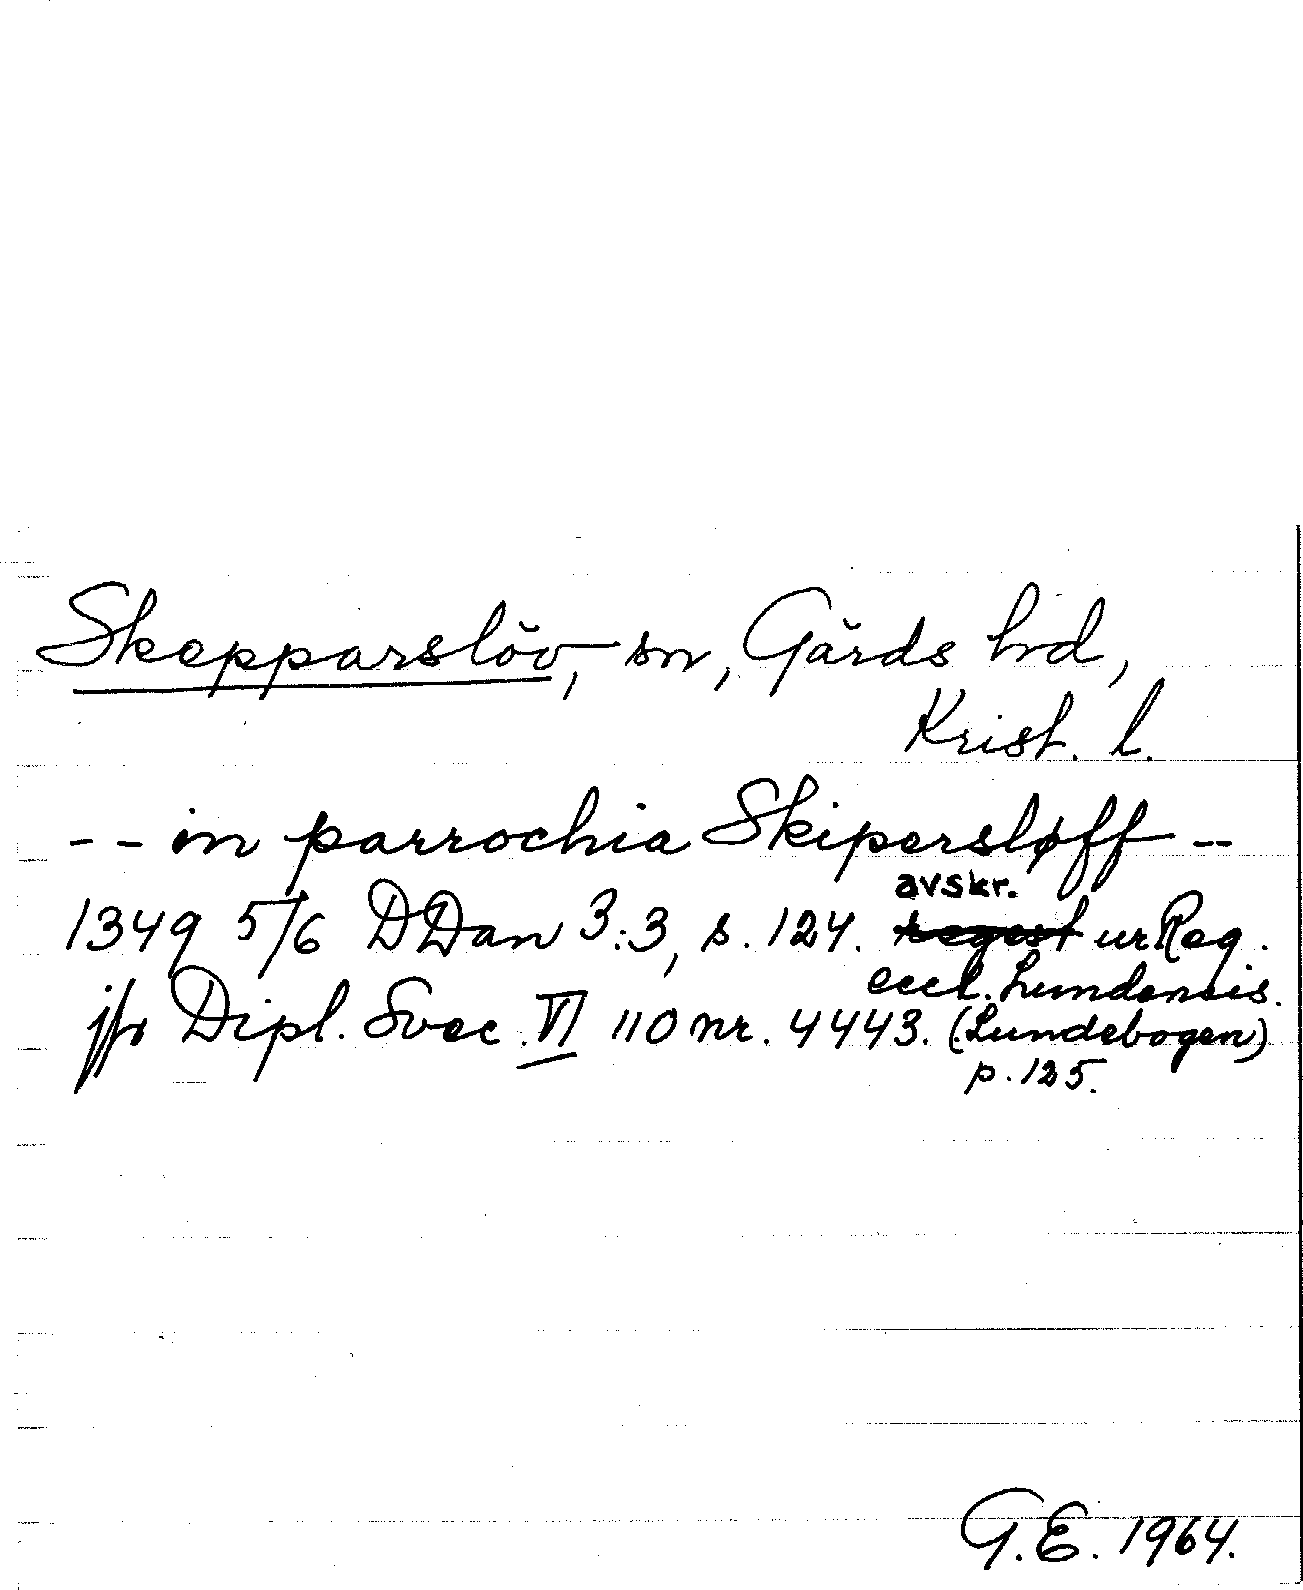 Skepparslöv, sn, Gärds hd,
Krist. l.
-- in parrochia Skipersløff --
avskr.
1349 5/6 DDan 3:3, s. 124. regest ur Reg.
eccl. Lundensis.
jfr Dipl. Svec. VI 110 nr. 4443. (Lundebogen)
p. 125.
G.E. 1964.